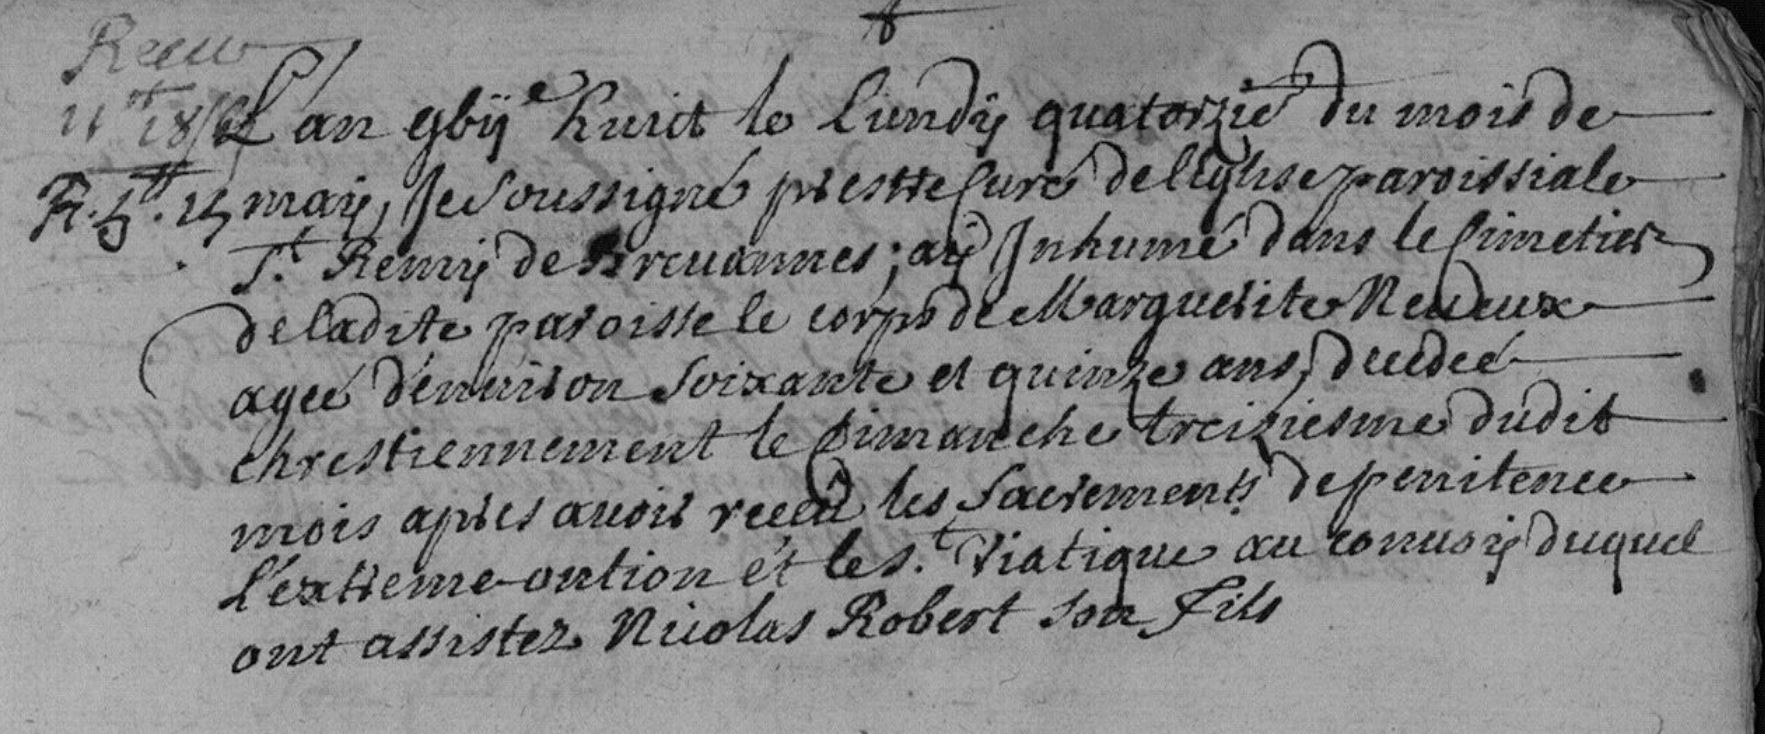 Receu
11 tt 18 s
Fr. 5 tt. 15
L'an gbij e huict le Lundÿ quatorzie du mois de
maÿ, Je Soussigné prestre Curé de l'Eglise paroissiale
St. Remÿ de Breuannes; aÿ Inhumé dans le Cimetier
de ladite paroisse le corps de Marguerite Neueux
agee d'enuiron soixante et quinze ans, decedeé
chrestiennement le Dimanche treiziesme dudit
mois apres auoir receu les Sacrements de penitence
L'extreme-onction et le St. Viatique au conuoÿ duquel
ont assistez Nicolas Robert son Fils